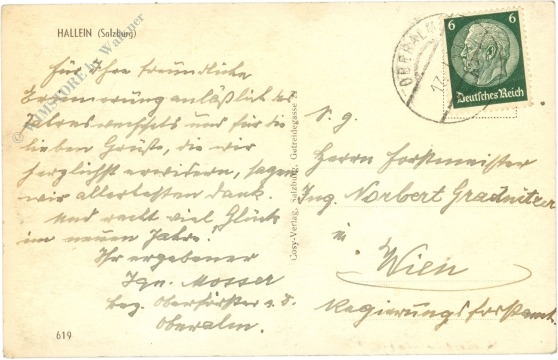 HALLEIN (Salzburg)
© WIMSTORE by Wagner
Für Ihre freundliche
Erinnerung anläßlich des
Jahreswechsels und für die
lieben Grüße, die wir
herzlichst erwidern, sagen
wir allerbesten Dank.
Und recht viel Glück
im neuen Jahre.
Ihr ergebener
Ign. Mosser
bez. Oberförster a. D.
Oberalm.
619
Cosy-Verlag, Salzburg, Getreidegasse 22
OBERALM
17.
6 6
Deutsches Reich
S. g.
Herrn Forstmeister
Ing. Norbert Gradnitzer
in
Wien
Regierungsforstamt.